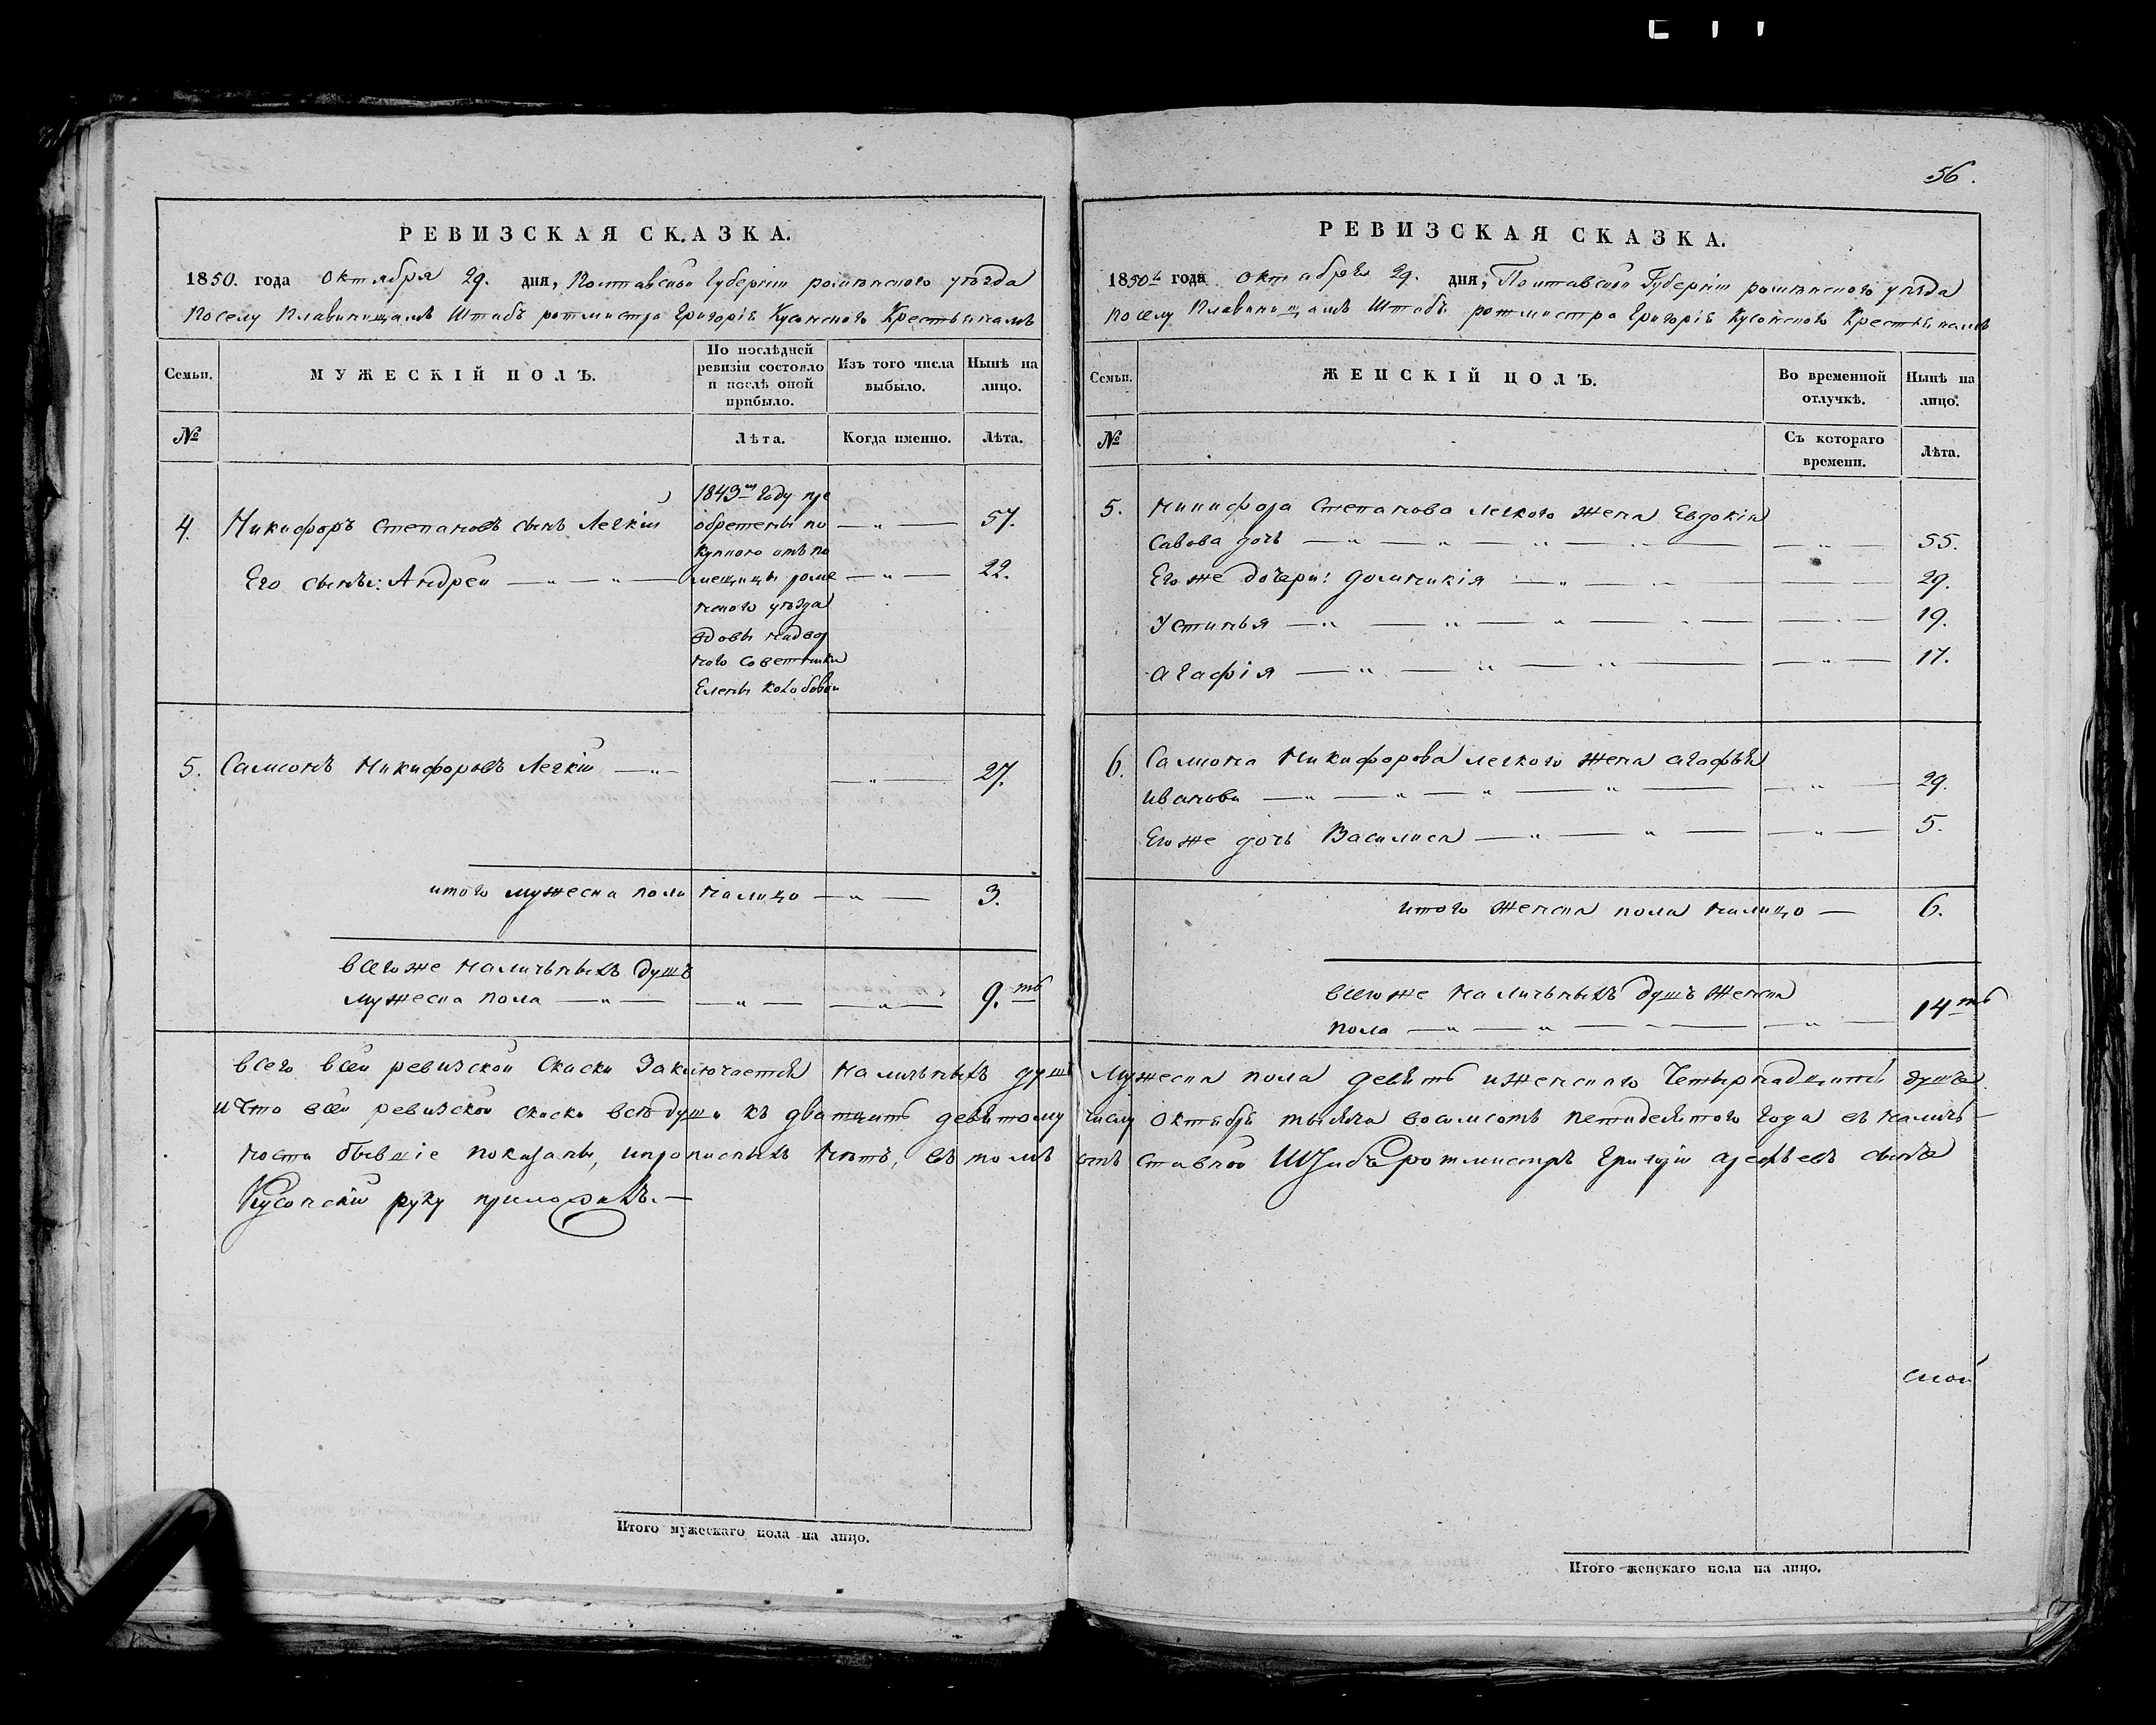 РЕВИЗСКАЯ СКАЗКА.
1850. года октября 29. дня, Полтавской Губерніи роменского уѣзда
По селу Плавинищамъ Штабъ ротмистра Григорія Кусонского Крестьянамъ
Семьи.
МУЖЕСКІЙ ПОЛЪ.
По послѣдней
ревизіи состояло
и послѣ оной
прибыло.
Изъ того числа
выбыло.
Нынѣ на
лицо.
№
Лѣта.
Когда именно.
Лѣта.
4. Никифоръ Степановъ сынъ Легкій — „ — 57.
Его сынъ: Андрей — „ — „ — — „ — 22.
1843го Году прі
обретены по
купкого отъ по
мещицы роме
нского уѣзда
вдовы надвор
ного советника
Елены
5. Самсонъ Никифоровъ Легкій — „ — — „ — 27.
итого мужеска пола налицо — „ — 3.
всего же наличныхъ душъ
мужеска пола — „ — — „ — — „ — 9.ть
56.
РЕВИЗСКАЯ СКАЗКА.
1850го года октабря 29. дня, Полтавской Губерніи роменского уѣзда
По селу Плавинищамъ Штабъ ротмистра Григорія Кусонского Крестьянамъ
Семьи.
ЖЕНСКІЙ ПОЛЪ.
Во временной
отлучкѣ.
Нынѣ на
лицо.
№
Съ котораго
времени.
Лѣта.
5. Никифора Степанова Легкого жена Евдокія
Савова дочь — „ — „ — „ — — „ — 55.
Его же дочери: Домникія — „ — 29.
Устинья — „ — „ — „ — 19.
Агафія — „ — „ — „ — — „ — 17.
6. Самсона Никифорова легкого жена агафья
Иванова — „ — „ — „ — „ — — „ — 29.
Его же дочь Василиса — „ — „ — — „ — 5.
итого женска пола налицо — 6.
всего же наличныхъ душъ женска
пола — „ — „ — — „ — 14ть
всего всей ревизской Скаски Заключается наличныхъ душъ Мужеска пола девять иженского Четырнадцать душъ
и Что всей ревизской скаски всѣ души къ дватцать девятому числу октября тысяча восимсотъ петидесятого года въ налич-
ности бывшіе показаны, и прописныхъ нетъ, въ томъ отставной Штабъ ротмистръ Григорій арефьевъ сынъ
Кусонскій руку приложилъ. —
Итого мужескаго пола на лицо.
Итого женскаго пола на лицо.